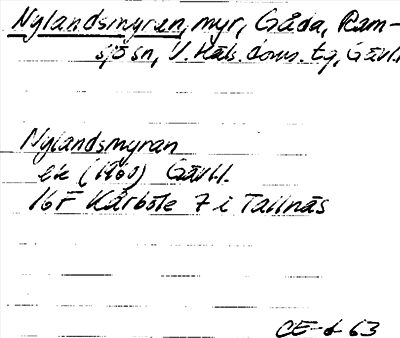 Nylandsmyran, myr, Gåda, Ram-
sjö sn, V. Häls. doms. tg, Gävl.
Nylandsmyran
ek (1960) Gävl.
16F Kårböle 7 i Tallnäs
CE-6-63